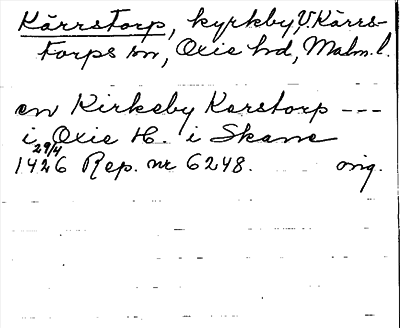 Kärrstorp, kyrkby, V. Kärrs-
torps sn, Oxie hd, Malm. l.
en Kirkeby Karstorp ---
i Oxie H. i Skane
29/4
1426 Rep. nr 6248. orig.